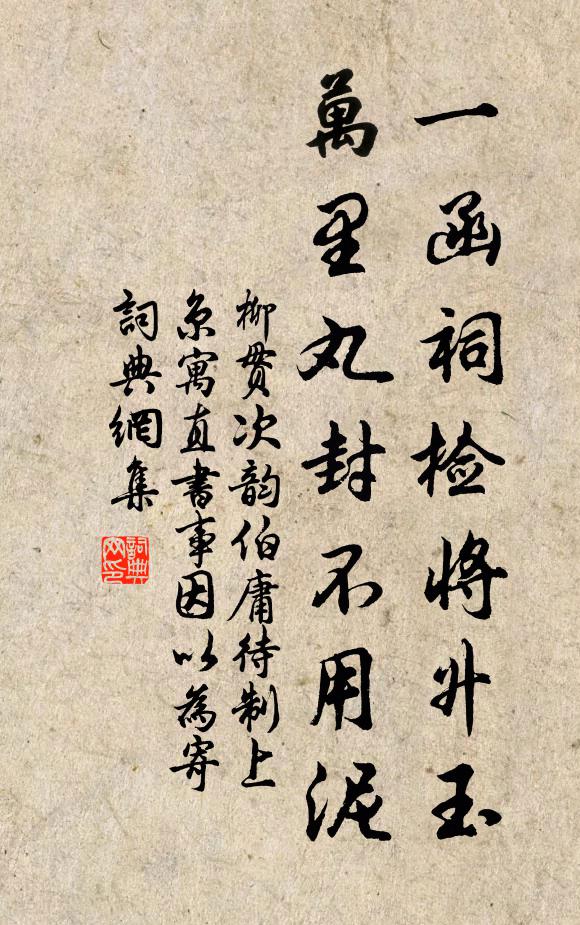 一函祠检将升玉
萬里丸封不用泥
柳貫次韵伯庸待制上
京寓直書事因以為寄
詞典網集
詞典
网印